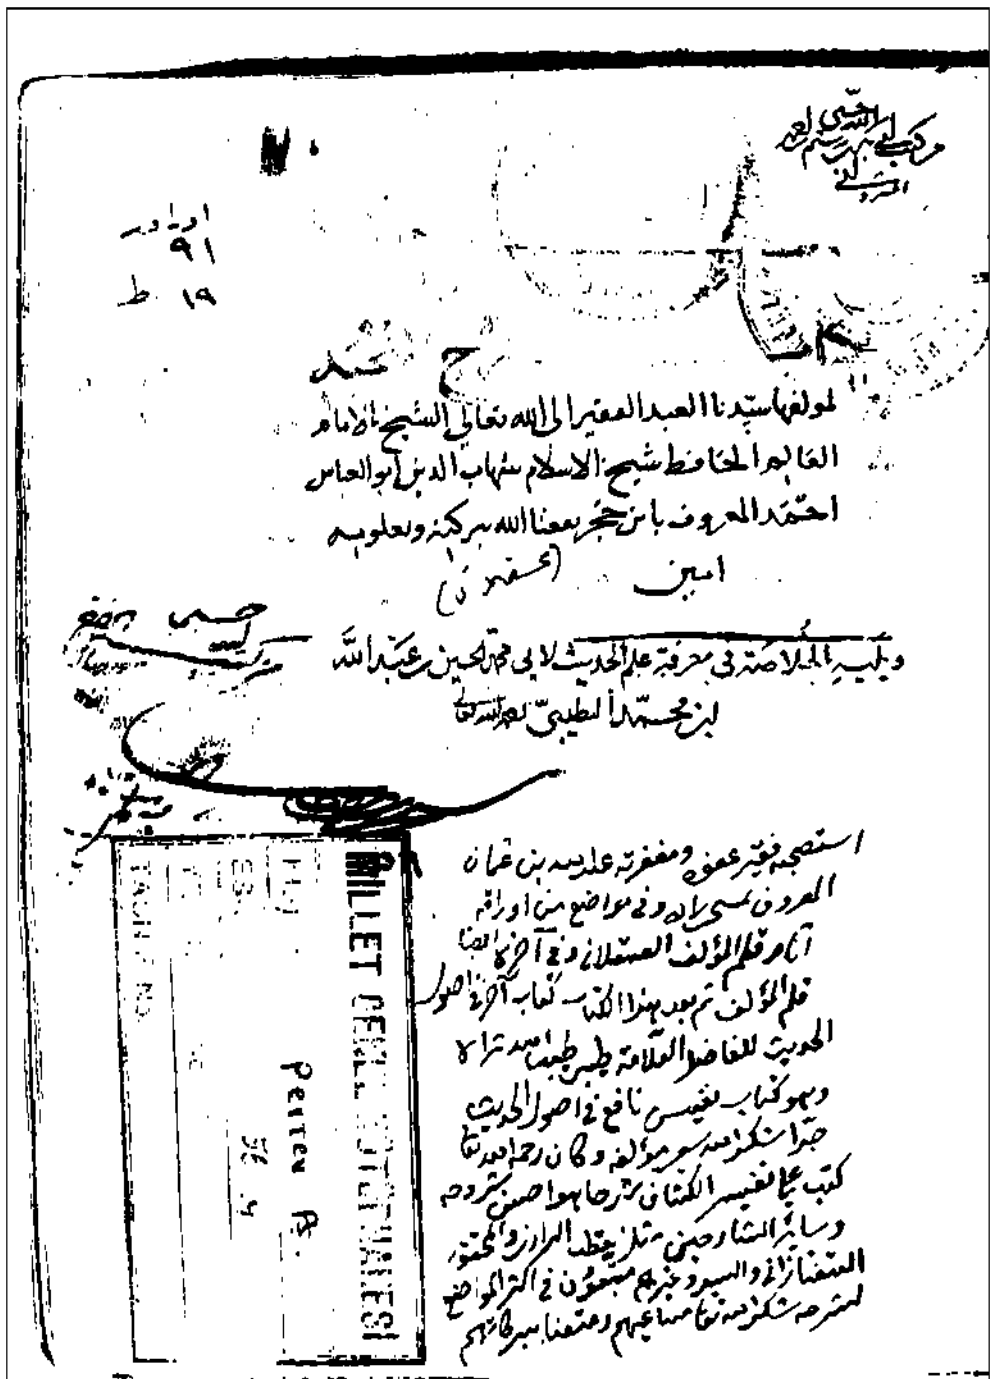 الله حسبي
اوراق
٩١
١٩ ط
لمولفها سيدنا العبد الفقير الى الله تعالى الشيخ الامام
العالم الحافظ شيخ الاسلام شهاب الدين ابو العباس
احمد المعروف بابن حجر نفعنا الله ببركته وبعلومه
امين
(عسقلاني)
حسبي
ويليه الخلاصة في معرفة علم الحديث لابي محمد الحسين بن عبد الله
ابن محمد الطيبي رحمه الله تعالى
استصحبه فقير عفوه ومغفرته بن عثمان
المعروف وفي مواضع من اوراقه
آثار قلم المؤلف العسقلاني وفي آخره ايضا
قلم المؤلف ثم بعد هذا الكتاب كتاب آخر في اصول
الحديث للفاضل العلامة طيب الله ثراه
وهو كتاب نفيس نافع في اصول الحديث
جدا شكر الله سعي مؤلفه وكان رحمه الله تعالى
كتب على تفسير الكشاف شرحا هو احسن شروحه
وسائر الشارحين مثل قطب الرازي والمحقق
التفتازاني والسيد وغيرهم متبعون في اكثر المواضع
لشرحه شكر الله تعالى مساعيهم ومتعنا ببركاتهم
MILLET GENEL KÜTÜPHANESİ
Pertev P.
TASNİF NO.